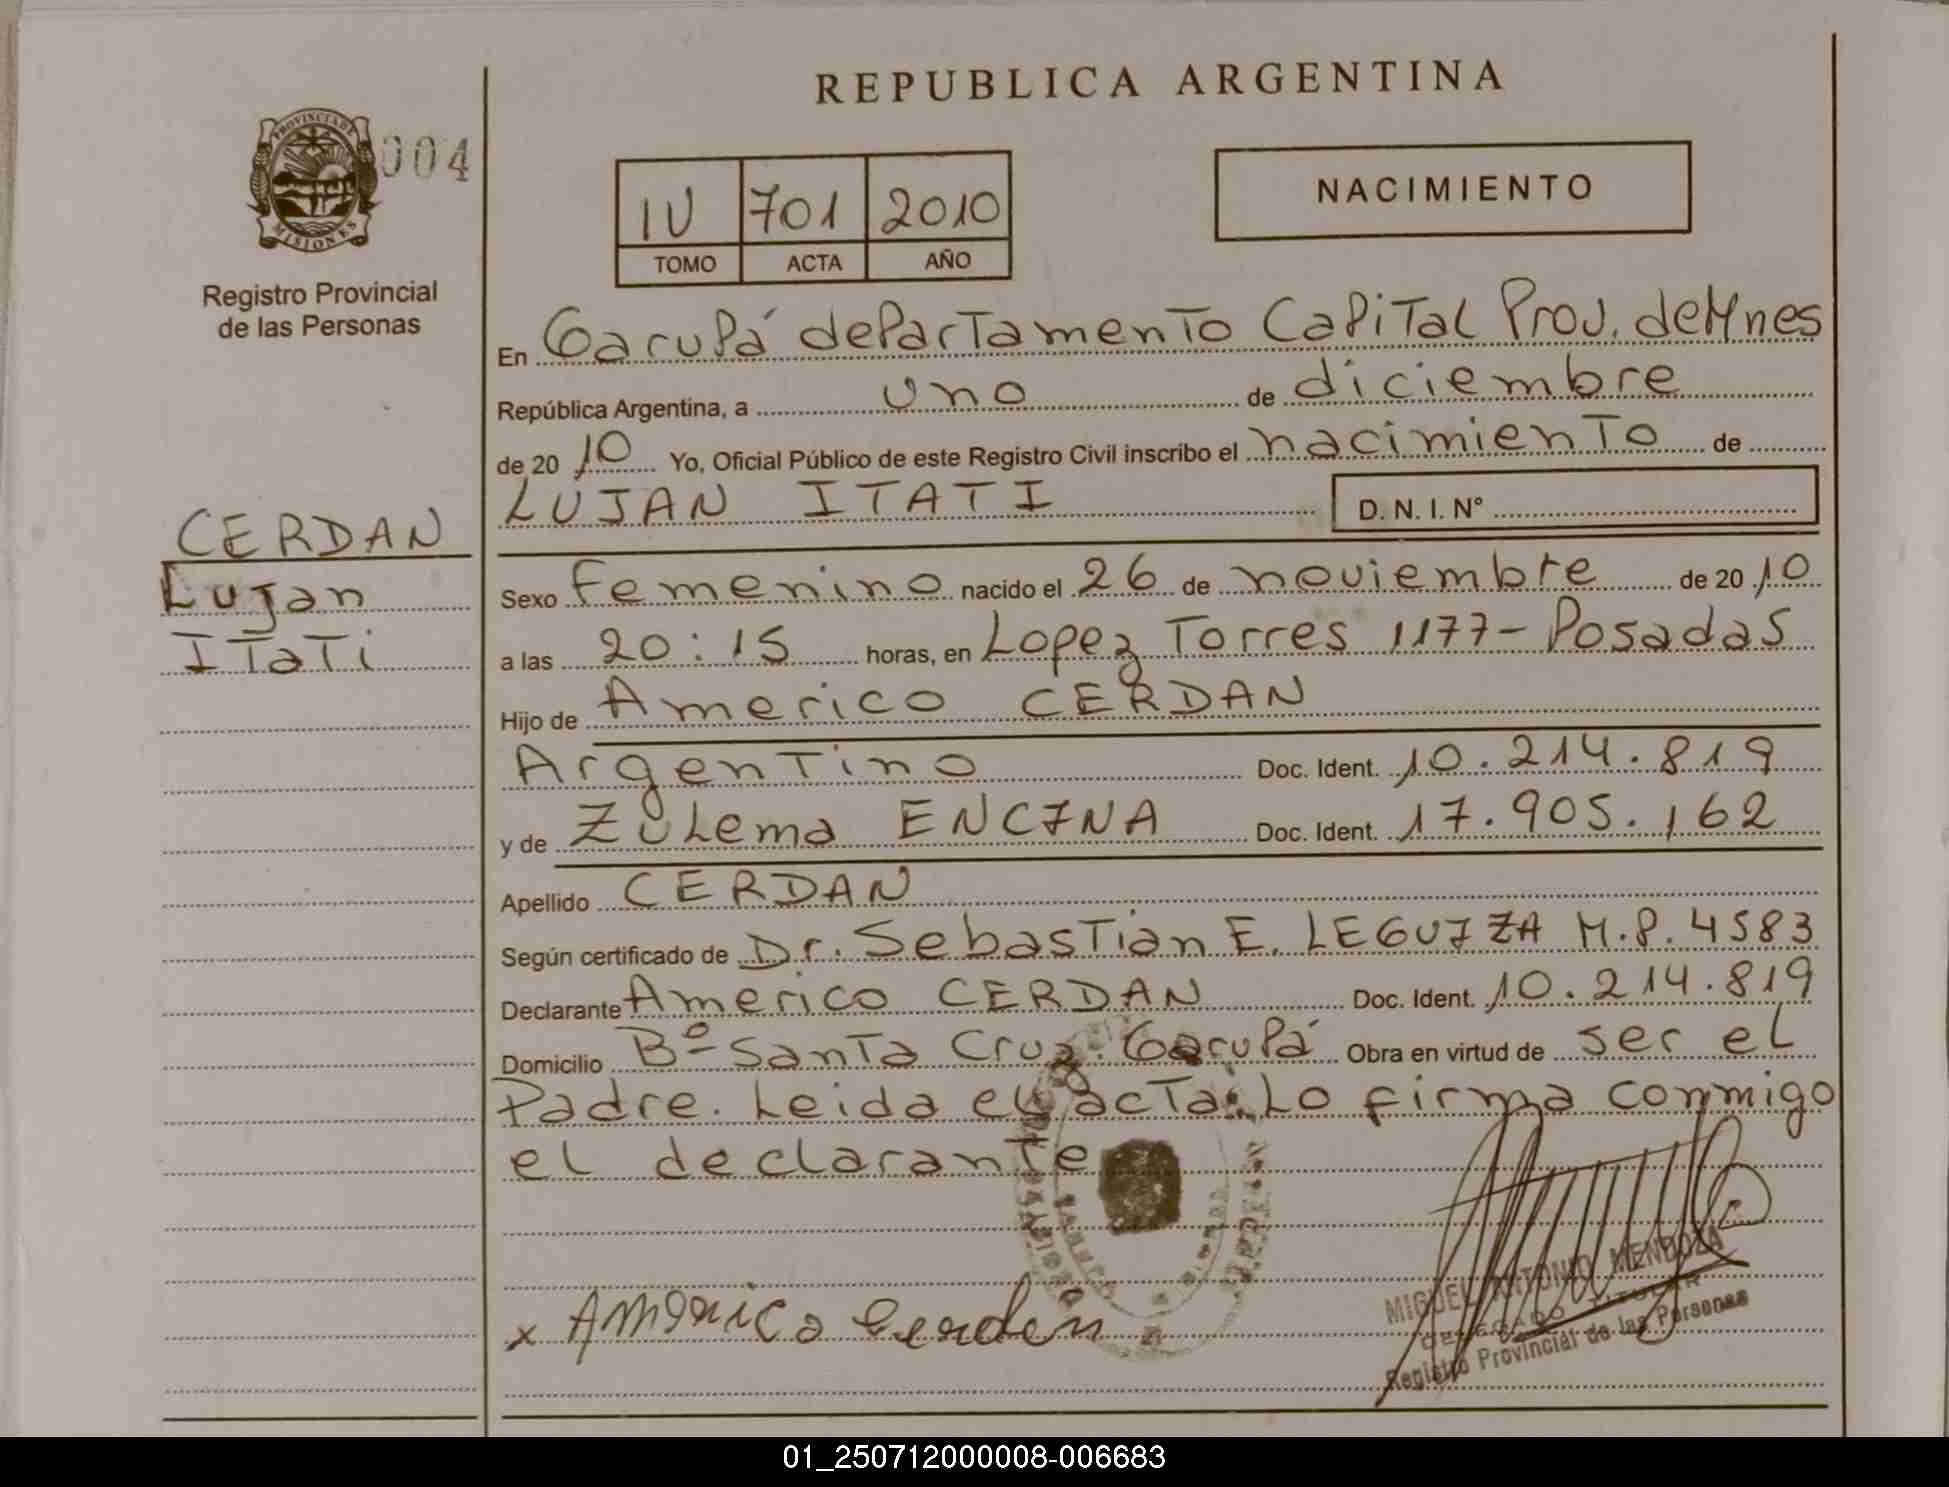 REPUBLICA ARGENTINA
PROVINCIA DE
MISIONES
004
Registro Provincial
de las Personas
IV 701 2010
TOMO ACTA AÑO
NACIMIENTO
En Garupá departamento Capital Prov. de Mnes
República Argentina, a uno de diciembre
de 20 10 Yo, Oficial Público de este Registro Civil inscribo el nacimiento de
LUJAN ITATI D. N. I. Nº
CERDAN
Lujan
Itati
Sexo Femenino nacido el 26 de noviembre de 20 10
a las 20:15 horas, en Lopez Torres 1177 - Posadas
Hijo de Americo CERDAN
Argentino Doc. Ident. 10.214.819
y de Zulema ENCINA Doc. Ident. 17.905.162
Apellido CERDAN
Según certificado de Dr. Sebastian E. LEGUIZA M.P. 4583
Declarante Americo CERDAN Doc. Ident. 10.214.819
Domicilio Bº Santa Cruz. Garupá Obra en virtud de ser el
Padre. Leida el acta. Lo firma conmigo
el declarante
x Americo Cerden
MIGUEL ANTONIO MENDOZA
DELEGADO TITULAR
Registro Provincial de las Personas
01_250712000008-006683